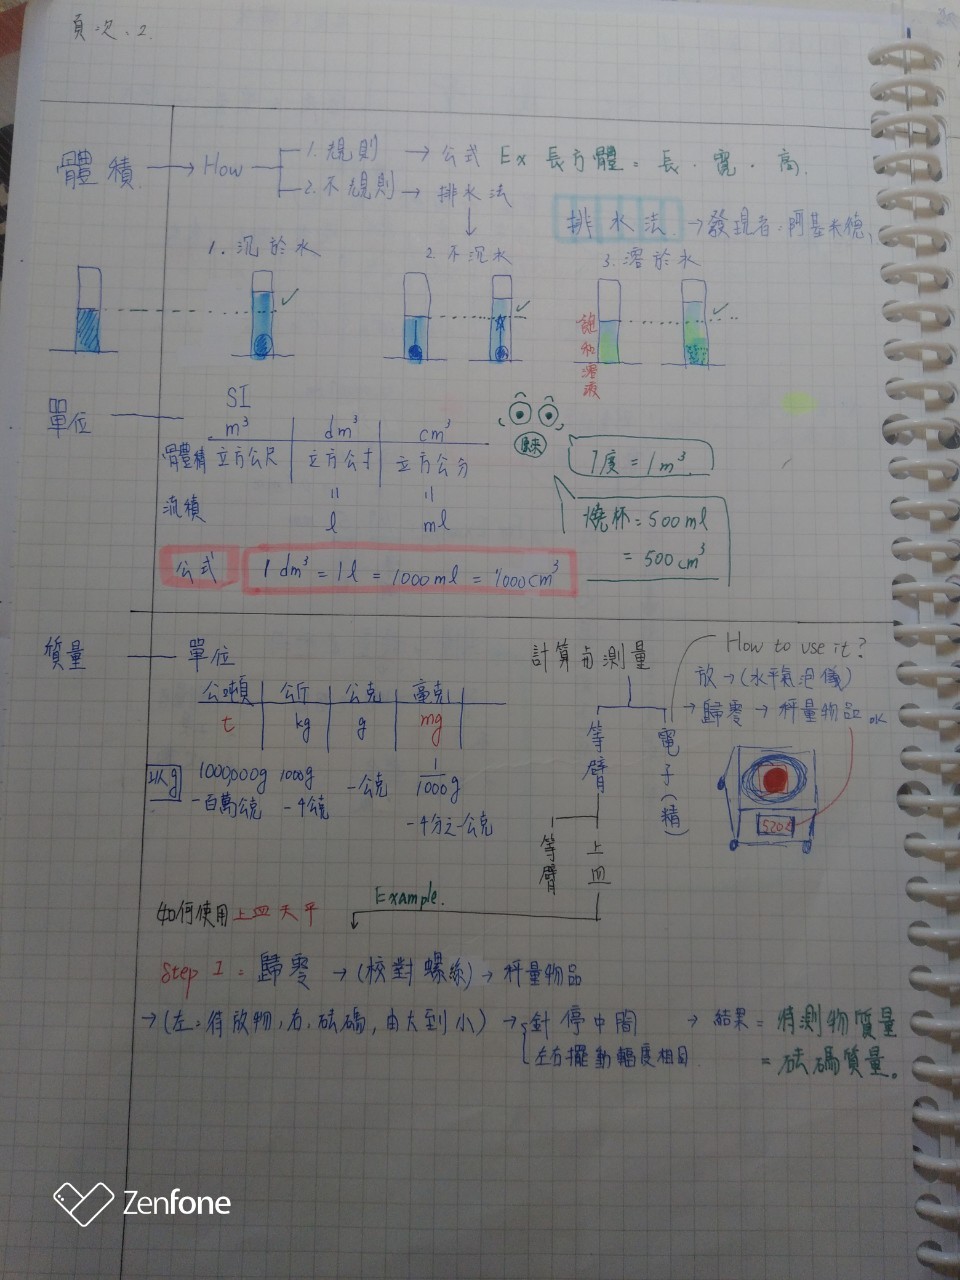 頁次、2.
體積 → How
1. 規則 → 公式 Ex 長方體 = 長 · 寬 · 高.
2. 不規則 → 排水法
排水法 → 發現者:阿基米德、
1. 沉於水
2. 不沉水
3. 溶於水
飽和溶液
單位
SI
m³ dm³ cm³
體積 立方公尺 立方公寸 立方公分
流積 = =
l ml
公式 1 dm³ = 1l = 1000ml = 1000cm³
1度 = 1m³
燒杯 = 500ml
= 500cm³
質量 單位
公噸 公斤 公克 毫克
t kg g mg
以g 1000,000g 1000g 一公克 1/1000 g
一百萬公克 一千公克 一千分之一公克
計算與測量
等臂
電子(精)
等臂
上皿
How to use it?
放 → (水平氣泡儀)
→ 歸零 → 秤量物品 OK
如何使用上皿天平
Example.
Step 1 = 歸零 → (校對螺絲) → 秤量物品
→ (左:待放物,右:砝碼,由大到小) → 針停中間 → 結果 = 待測物質量
左右擺動幅度相同
= 砝碼質量。
Zenfone